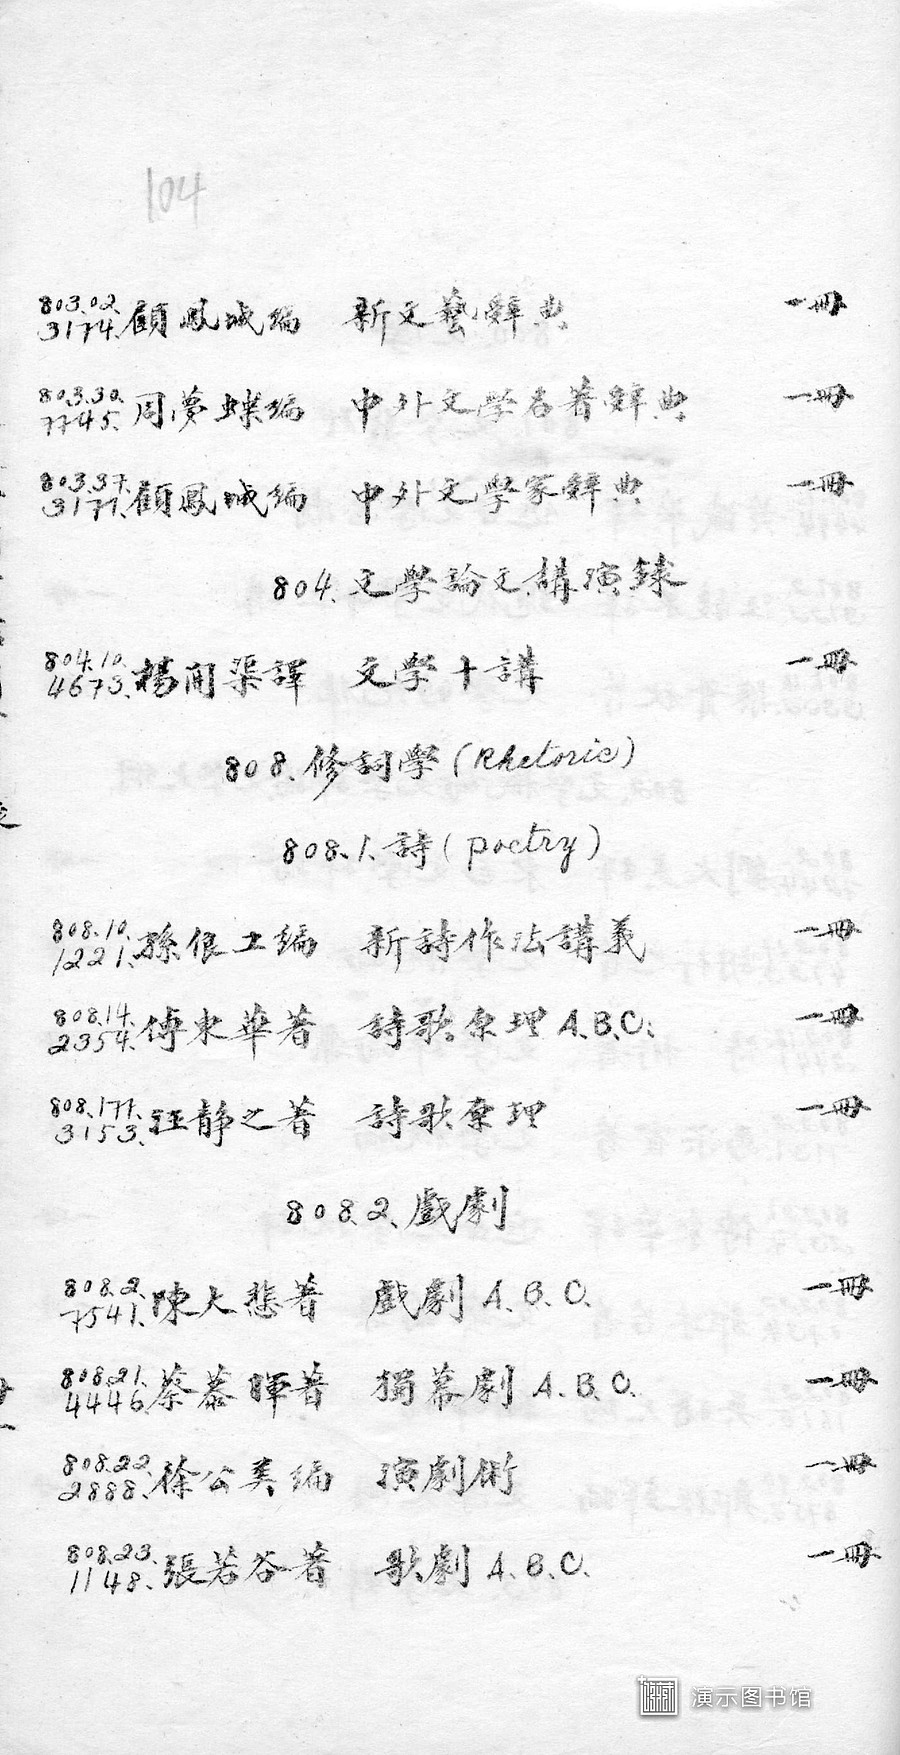 104
803.02. 3174. 顧鳳城編 新文藝辭典 一冊
803.30. 7745. 周夢蝶編 中外文學名著辭典 一冊
803.37. 3177. 顧鳳城編 中外文學家辭典 一冊
804. 文學論文、講演錄
804.10. 4673. 楊開渠譯 文學十講 一冊
808. 修詞學 (Rhetoric)
808.1. 詩 (poetry)
808.10. 1221. 孫俍工編 新詩作法講義 一冊
808.14. 2354. 傅東華著 詩歌原理 A.B.C. 一冊
808.177. 3153. 汪靜之著 詩歌原理 一冊
808.2. 戲劇
808.2. 7541. 陳大悲著 戲劇 A.B.C. 一冊
808.21. 4446. 蔡慕暉著 獨幕劇 A.B.C. 一冊
808.22. 2888. 徐公美編 演劇術 一冊
808.23. 1148. 張若谷著 歌劇 A.B.C. 一冊
演示图书馆